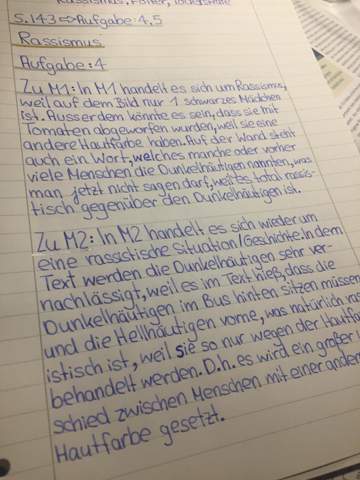 Rassismus, Folter, Todesstrafe
S.143 ⇨ Aufgabe: 4,5
Rassismus
Aufgabe: 4
Zu M1: In M1 handelt es sich um Rassismus,
weil auf dem Bild nur 1 schwarzes Mädchen
ist. Ausserdem könnte es sein, dass sie mit
Tomaten abgeworfen wurden, weil sie eine
andere Hautfarbe haben. Auf der Wand steht
auch ein Wort, welches manche oder vorher
viele Menschen die Dunkelhäutigen nannten, was
man jetzt nicht sagen darf, weil es total rassis-
tisch gegenüber den Dunkelhäutigen ist.
Zu M2: In M2 handelt es sich wieder um
eine rassistische Situation/Geschichte. In dem
Text werden die Dunkelhäutigen sehr ver-
nachlässigt, weil es im Text hieß, dass die
Dunkelhäutigen im Bus hinten sitzen müssen
und die Hellhäutigen vorne, was natürlich
istisch ist, weil sie so nur wegen der
behandelt werden. D.h. es wird ein großer
schied zwischen Menschen mit einer
Hautfarbe gesetzt.